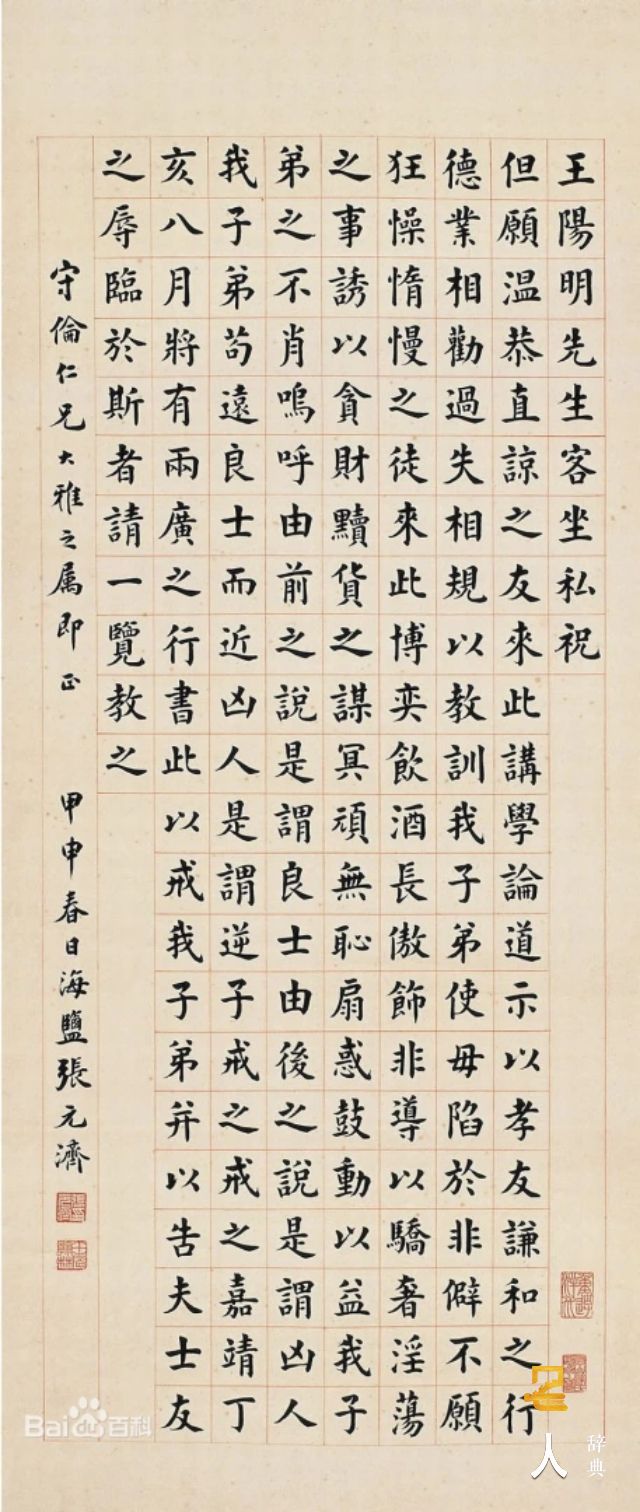 王陽明先生客坐私祝
但願温恭直諒之友來此講學論道示以孝友謙和之行
德業相勸過失相規以教訓我子弟使毋陷於非僻不願
狂懆惰慢之徒來此博奕飲酒長傲飾非導以驕奢淫蕩
之事誘以貪財黷貨之謀冥頑無恥扇惑鼓動以益我子
弟之不肖嗚呼由前之說是謂良士由後之說是謂凶人
我子弟苟遠良士而近凶人是謂逆子戒之戒之嘉靖丁
亥八月將有兩廣之行書此以戒我子弟并以告夫士友
之辱臨於斯者請一覽教之
守倫仁兄大雅之属即正 甲申春日海鹽張元濟
Bai百科
人 辞典